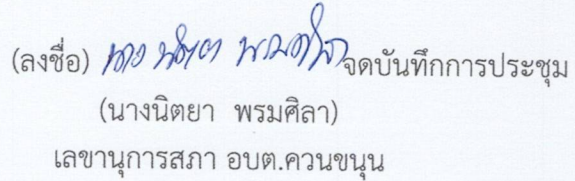 (ลงชื่อ) นาง นิตยา พรมศิลา จดบันทึกการประชุม
(นางนิตยา พรมศิลา)
เลขานุการสภา อบต.ควนขนุน